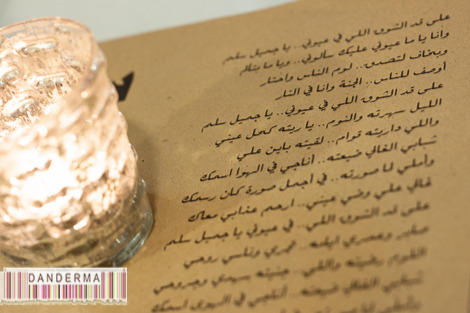 على قد الشوق اللي في عيوني.. يا جميل سلم
وانا ياما عيوني عليك سألوني.. وياما بتألم
وبخاف لتصدق.. لوم الناس واحتار
أوصف للناس.. الجنة وانا في النار
على قد الشوق اللي في عيوني.. يا جميل سلم
الليل سهرته والنوم.. يا ريته كحل عيني
واللي داريته قوام.. لقيته باين علي
شبابي الغالي ضيعته.. أناجي في الهوا اسمك
وأملي لما صورته.. في أجمل صورة كان رسمك
غالي علي وضي عيني.. ارحم عذابي معاك
على قد الشوق اللي.. في عيوني يا جميل سلم
صابر وعمري ليله.. عمري وناسي روحي
اللوم رضيته واللي.. جنيته سهدي وجروحي
شبابي الغالي ضيعته.. أناجي في الهوى اسمك
DANDERMA